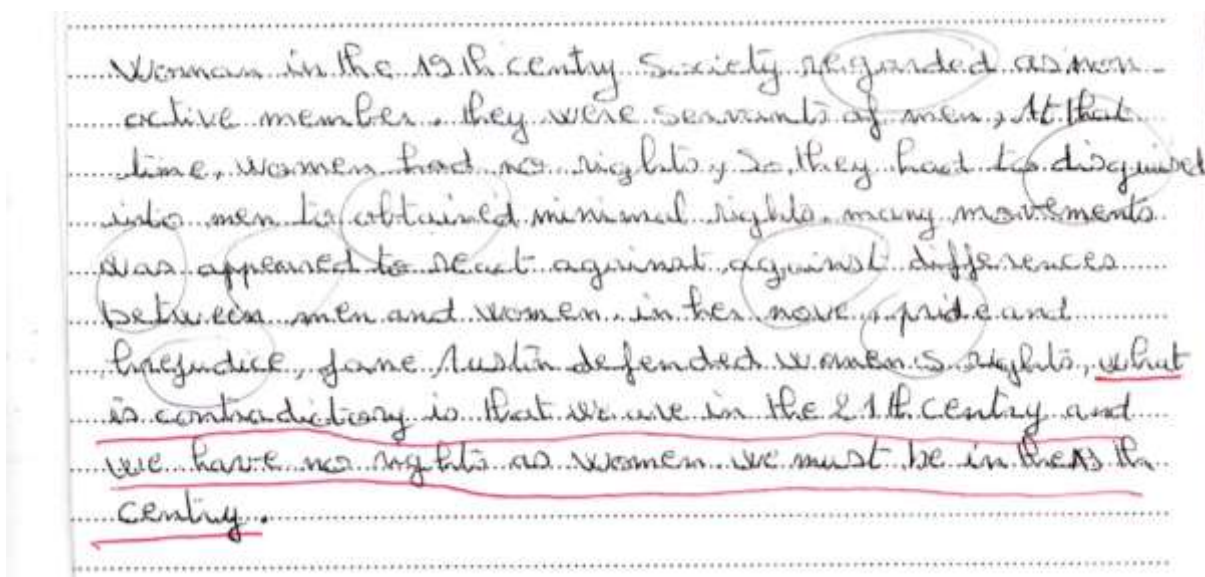 Woman in the 19th centry Society regarded as non-
active member. they were servants of men, At that
time, women had no rights, so, they had to disguised
into men to obtained minimal rights. many movements
was appeared to react against against differences
between men and women. in her nove, pride and
prejudice, Jane Austin defended women's rights, what
is contradictory is that we are in the 21th centry and
we have no rights as women. we must be in the 19 th
centry.